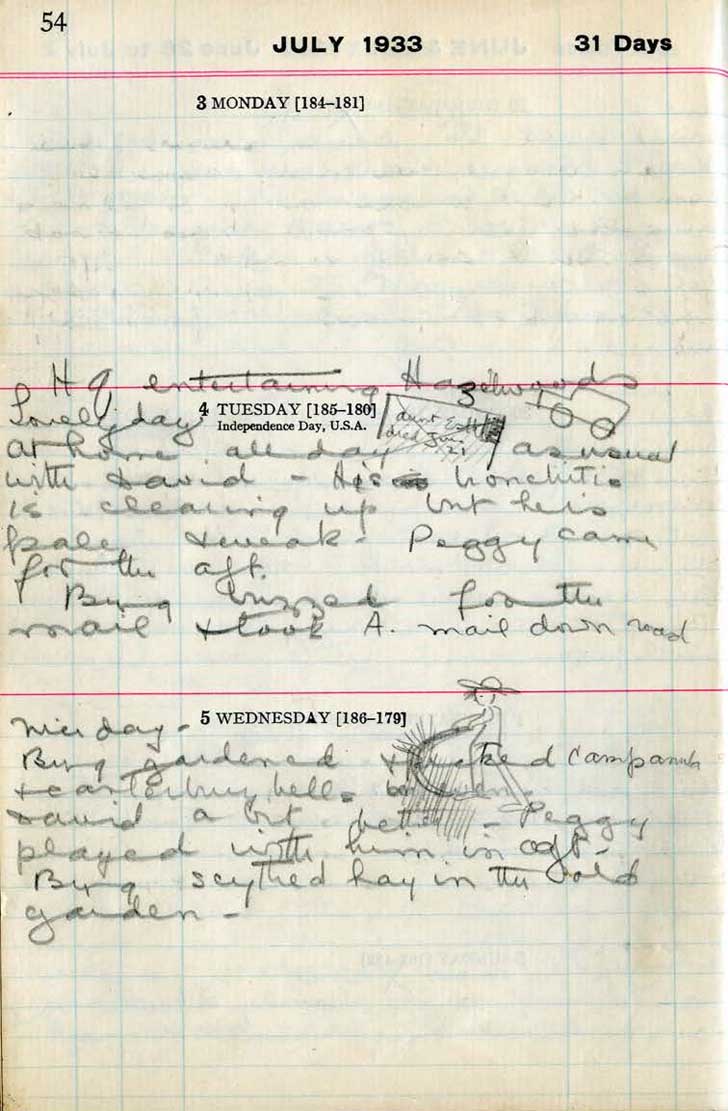 54
JULY 1933 31 Days
3 MONDAY [184–181]
H G entertaining Hazelwoods
4 TUESDAY [185–180]
Independence Day, U.S.A.
Lovely day
Aunt
died June
21
At home all day as usual
with David – His bronchitis
is clearing up but he is
pale & weak – Peggy came
for the aft.
Byng buzzed for the
mail & took A. mail down road
5 WEDNESDAY [186–179]
Nicer day –
Byng gardened & picked
& canterbury bells
David a bit better – Peggy
played with him in aft –
Byng scythed hay in the old
garden –